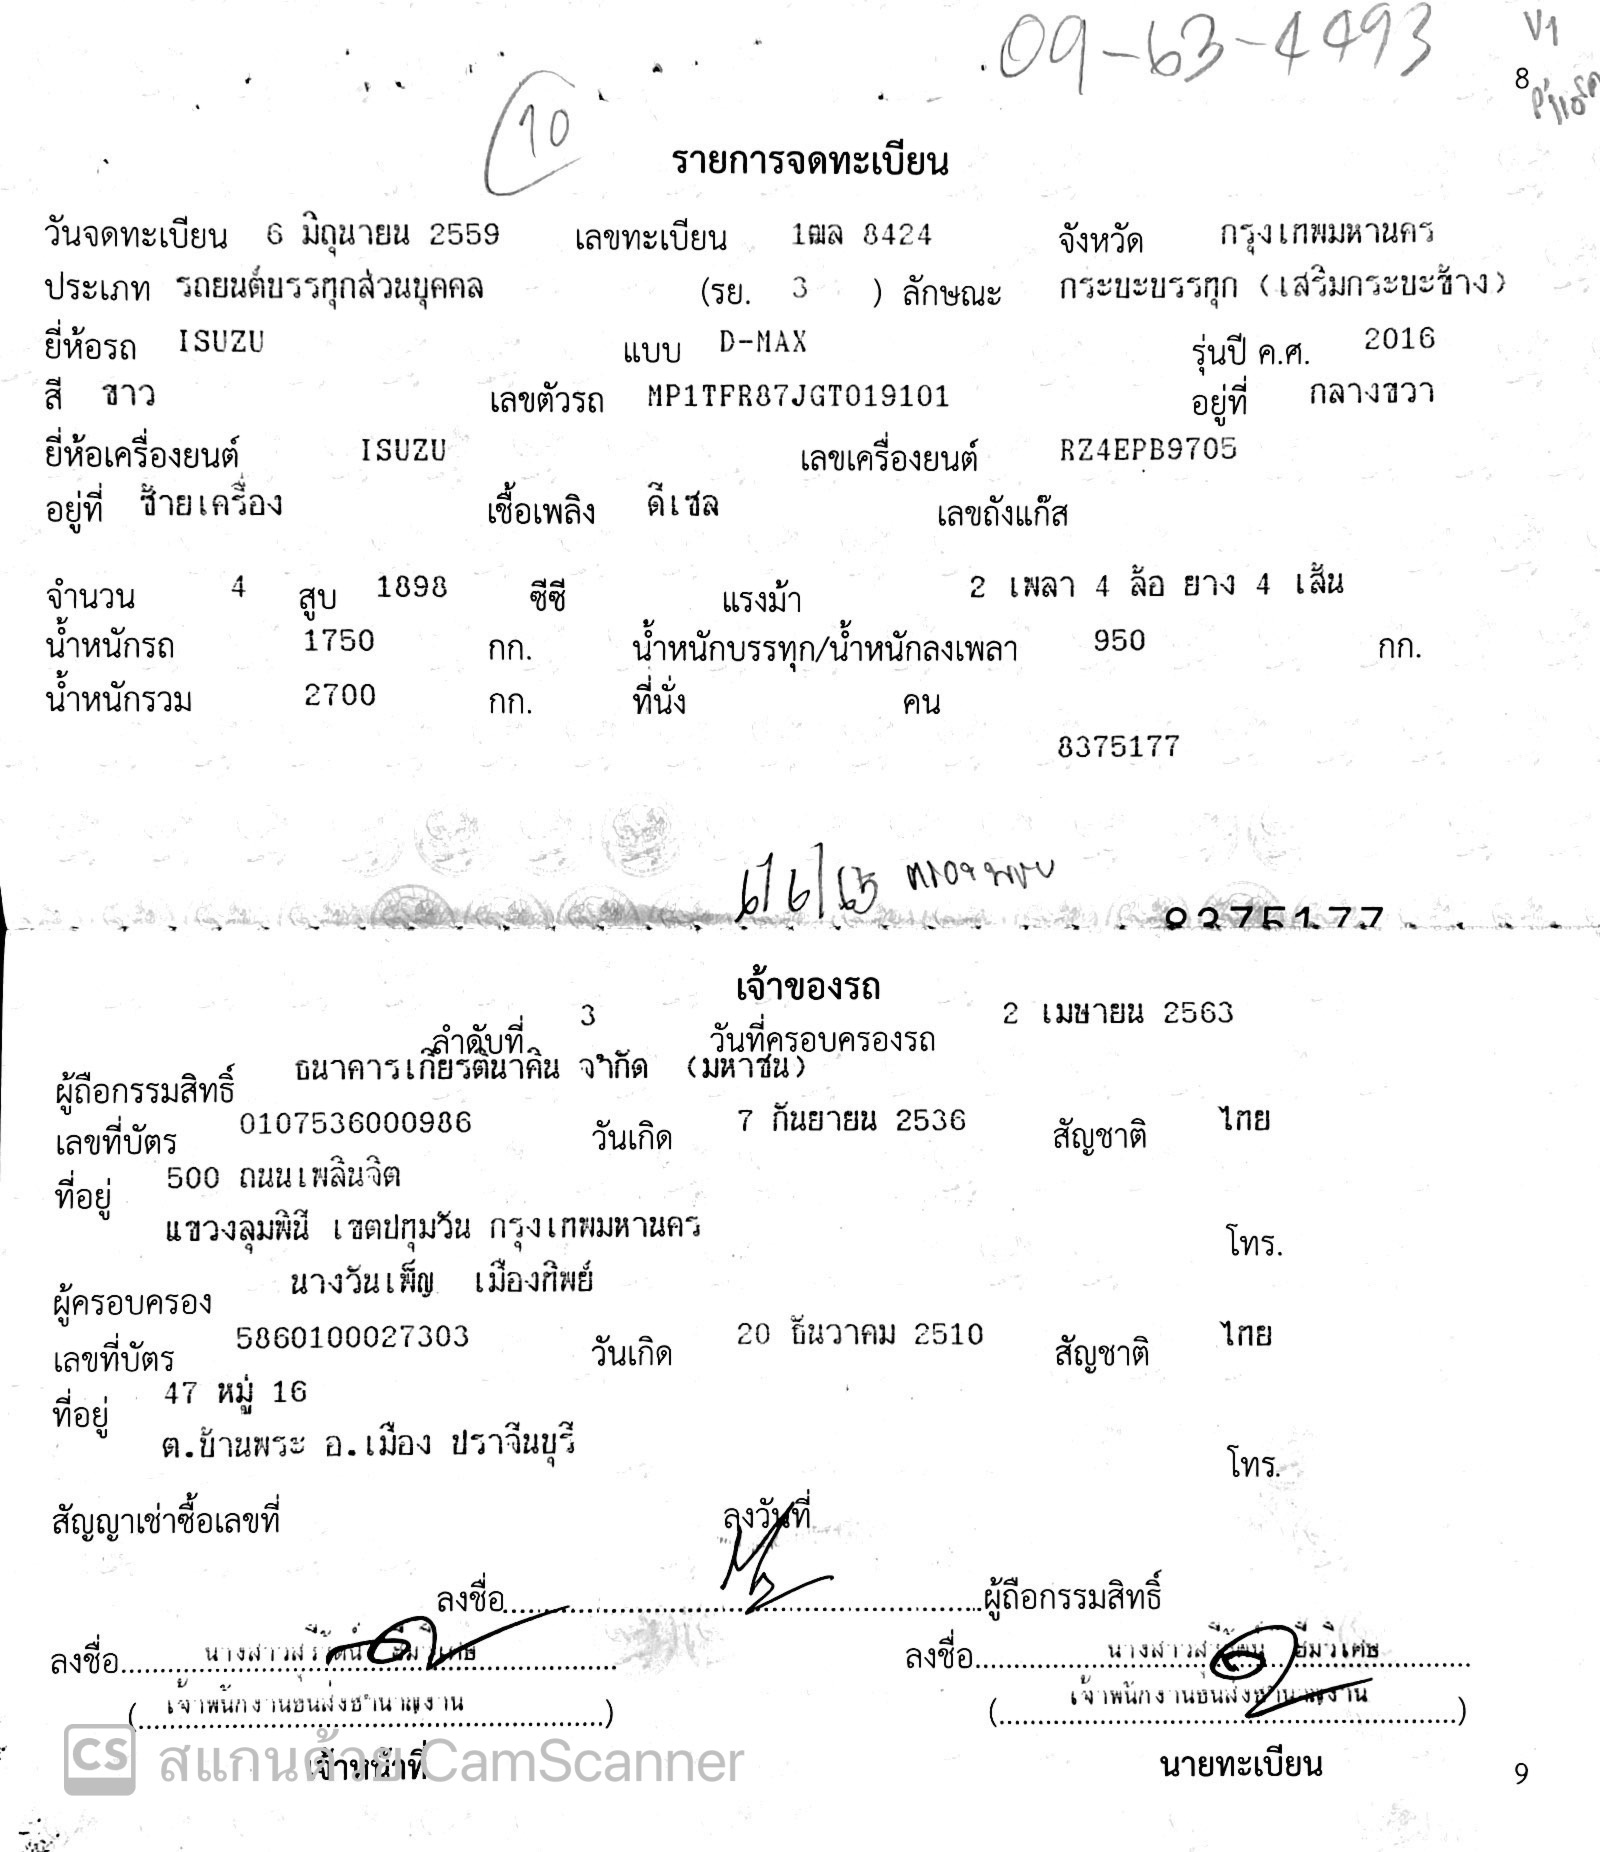 09-63-4493
V1
8
10
รายการจดทะเบียน
วันจดทะเบียน 6 มิถุนายน 2559 เลขทะเบียน 1ฒล 8424 จังหวัด กรุงเทพมหานคร
ประเภท รถยนต์บรรทุกส่วนบุคคล (รย. 3 ) ลักษณะ กระบะบรรทุก (เสริมกระบะข้าง)
ยี่ห้อรถ ISUZU แบบ D-MAX รุ่นปี ค.ศ. 2016
สี ขาว เลขตัวรถ MP1TFR87JGT019101 อยู่ที่ กลางขวา
ยี่ห้อเครื่องยนต์ ISUZU เลขเครื่องยนต์ RZ4EPB9705
อยู่ที่ ซ้ายเครื่อง เชื้อเพลิง ดีเซล เลขถังแก๊ส
จำนวน 4 สูบ 1898 ซีซี แรงม้า 2 เพลา 4 ล้อ ยาง 4 เส้น
น้ำหนักรถ 1750 กก. น้ำหนักบรรทุก/น้ำหนักลงเพลา 950 กก.
น้ำหนักรวม 2700 กก. ที่นั่ง คน
8375177
6/6/65
8375177
เจ้าของรถ
ลำดับที่ 3 วันที่ครอบครองรถ 2 เมษายน 2563
ผู้ถือกรรมสิทธิ์ ธนาคารเกียรตินาคิน จำกัด (มหาชน)
เลขที่บัตร 0107536000986 วันเกิด 7 กันยายน 2536 สัญชาติ ไทย
ที่อยู่ 500 ถนนเพลินจิต
แขวงลุมพินี เขตปทุมวัน กรุงเทพมหานคร โทร.
ผู้ครอบครอง นางวันเพ็ญ เมืองทิพย์
เลขที่บัตร 5860100027303 วันเกิด 20 ธันวาคม 2510 สัญชาติ ไทย
ที่อยู่ 47 หมู่ 16
ต.บ้านพระ อ.เมือง ปราจีนบุรี โทร.
สัญญาเช่าซื้อเลขที่ ลงวันที่
ลงชื่อ ผู้ถือกรรมสิทธิ์
ลงชื่อ นางสาวสุรีรัตน์ ลงชื่อ นางสาวสุรีรัตน์
( เจ้าพนักงานขนส่งชำนาญงาน ) ( เจ้าพนักงานขนส่งชำนาญงาน )
เจ้าหน้าที่ นายทะเบียน
CS สแกนด้วย CamScanner
9